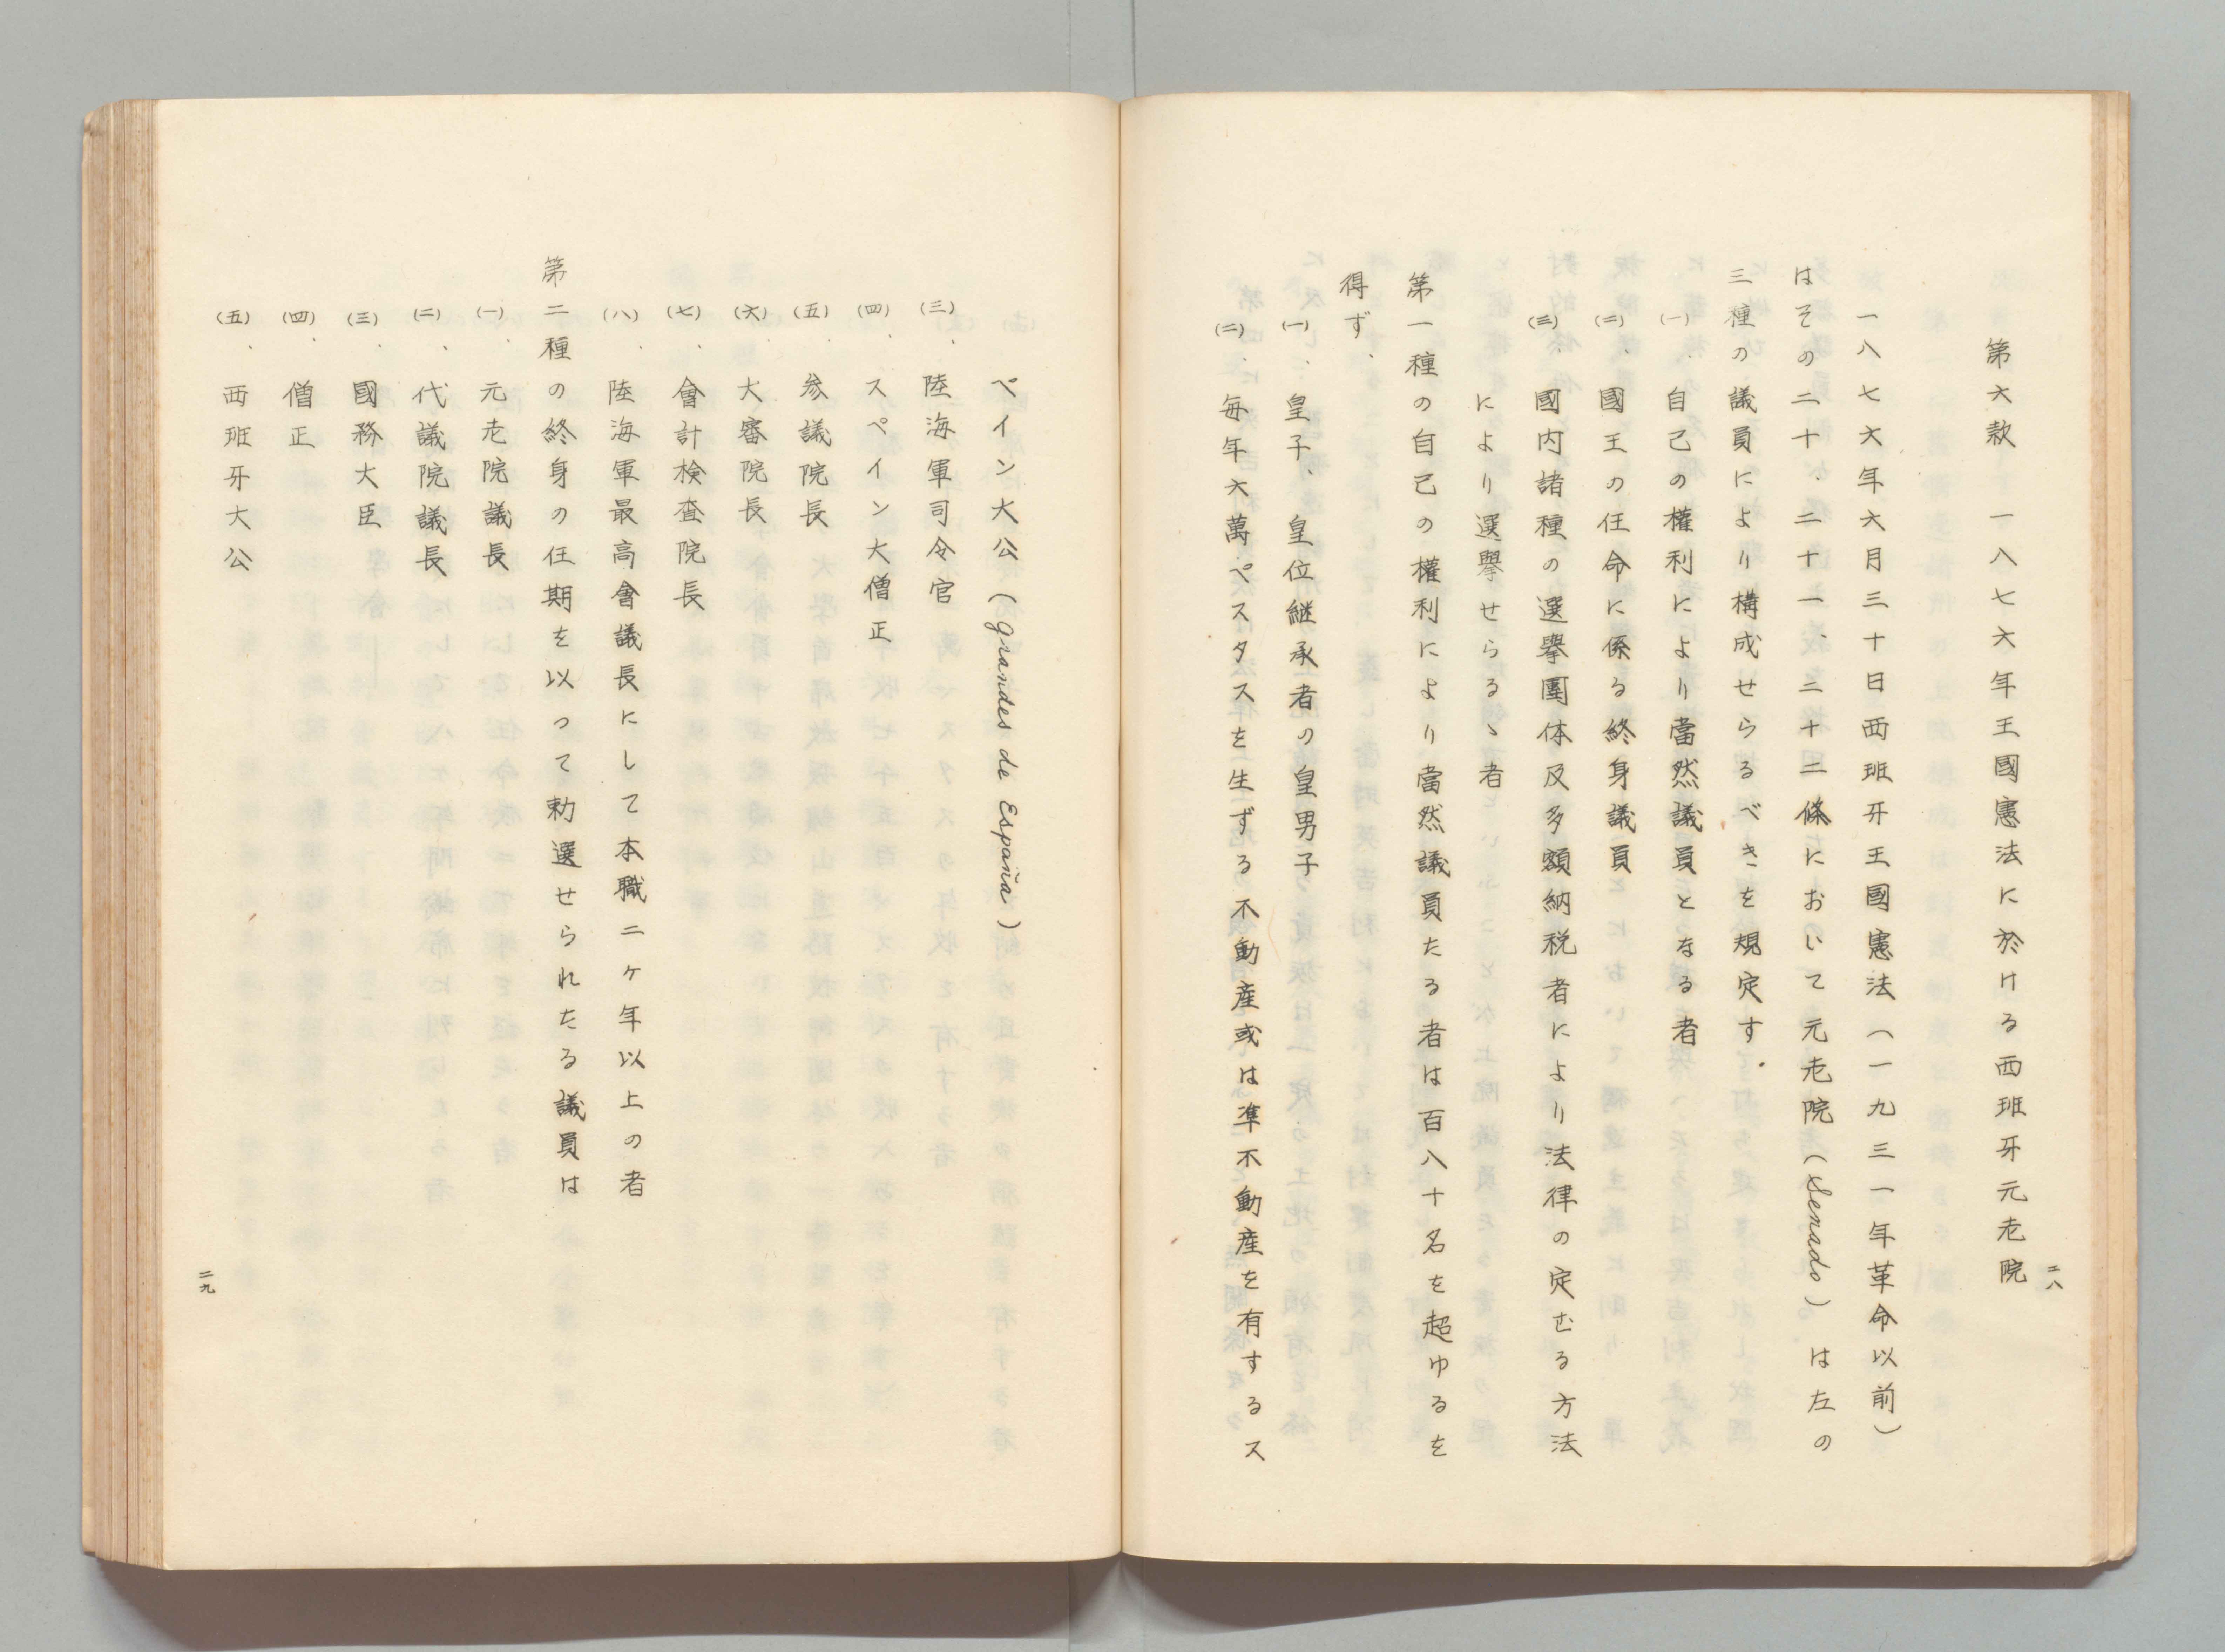 第六款　一八七六年王國憲法に於ける西班牙元老院
一八七六年六月三十日西班牙王國憲法（一九三一年革命以前）
はその二十、二十一、二十二條において元老院（Senado）は左の
三種の議員により構成せらるべきを規定す。
(一)、自己の權利により當然議員となる者
(二)、國王の任命に係る終身議員
(三)、國内諸種の選擧團体及多額納税者により法律の定むる方法
により選擧せらるゝ者
第一種の自己の權利により當然議員たる者は百八十名を超ゆるを
得ず、
(一)、皇子、皇位継承者の皇男子
(二)、毎年六萬ペスタスを生ずる不動産或は準不動産を有するス
二八
ペイン大公（grandes de España）
(三)、陸海軍司令官
(四)、スペイン大僧正
(五)、参議院長
(六)、大審院長
(七)、會計検査院長
(八)、陸海軍最高會議長にして本職二ヶ年以上の者
第二種の終身の任期を以って勅選せられたる議員は
(一)、元老院議長
(二)、代議院議長
(三)、國務大臣
(四)、僧正
(五)、西班牙大公
二九